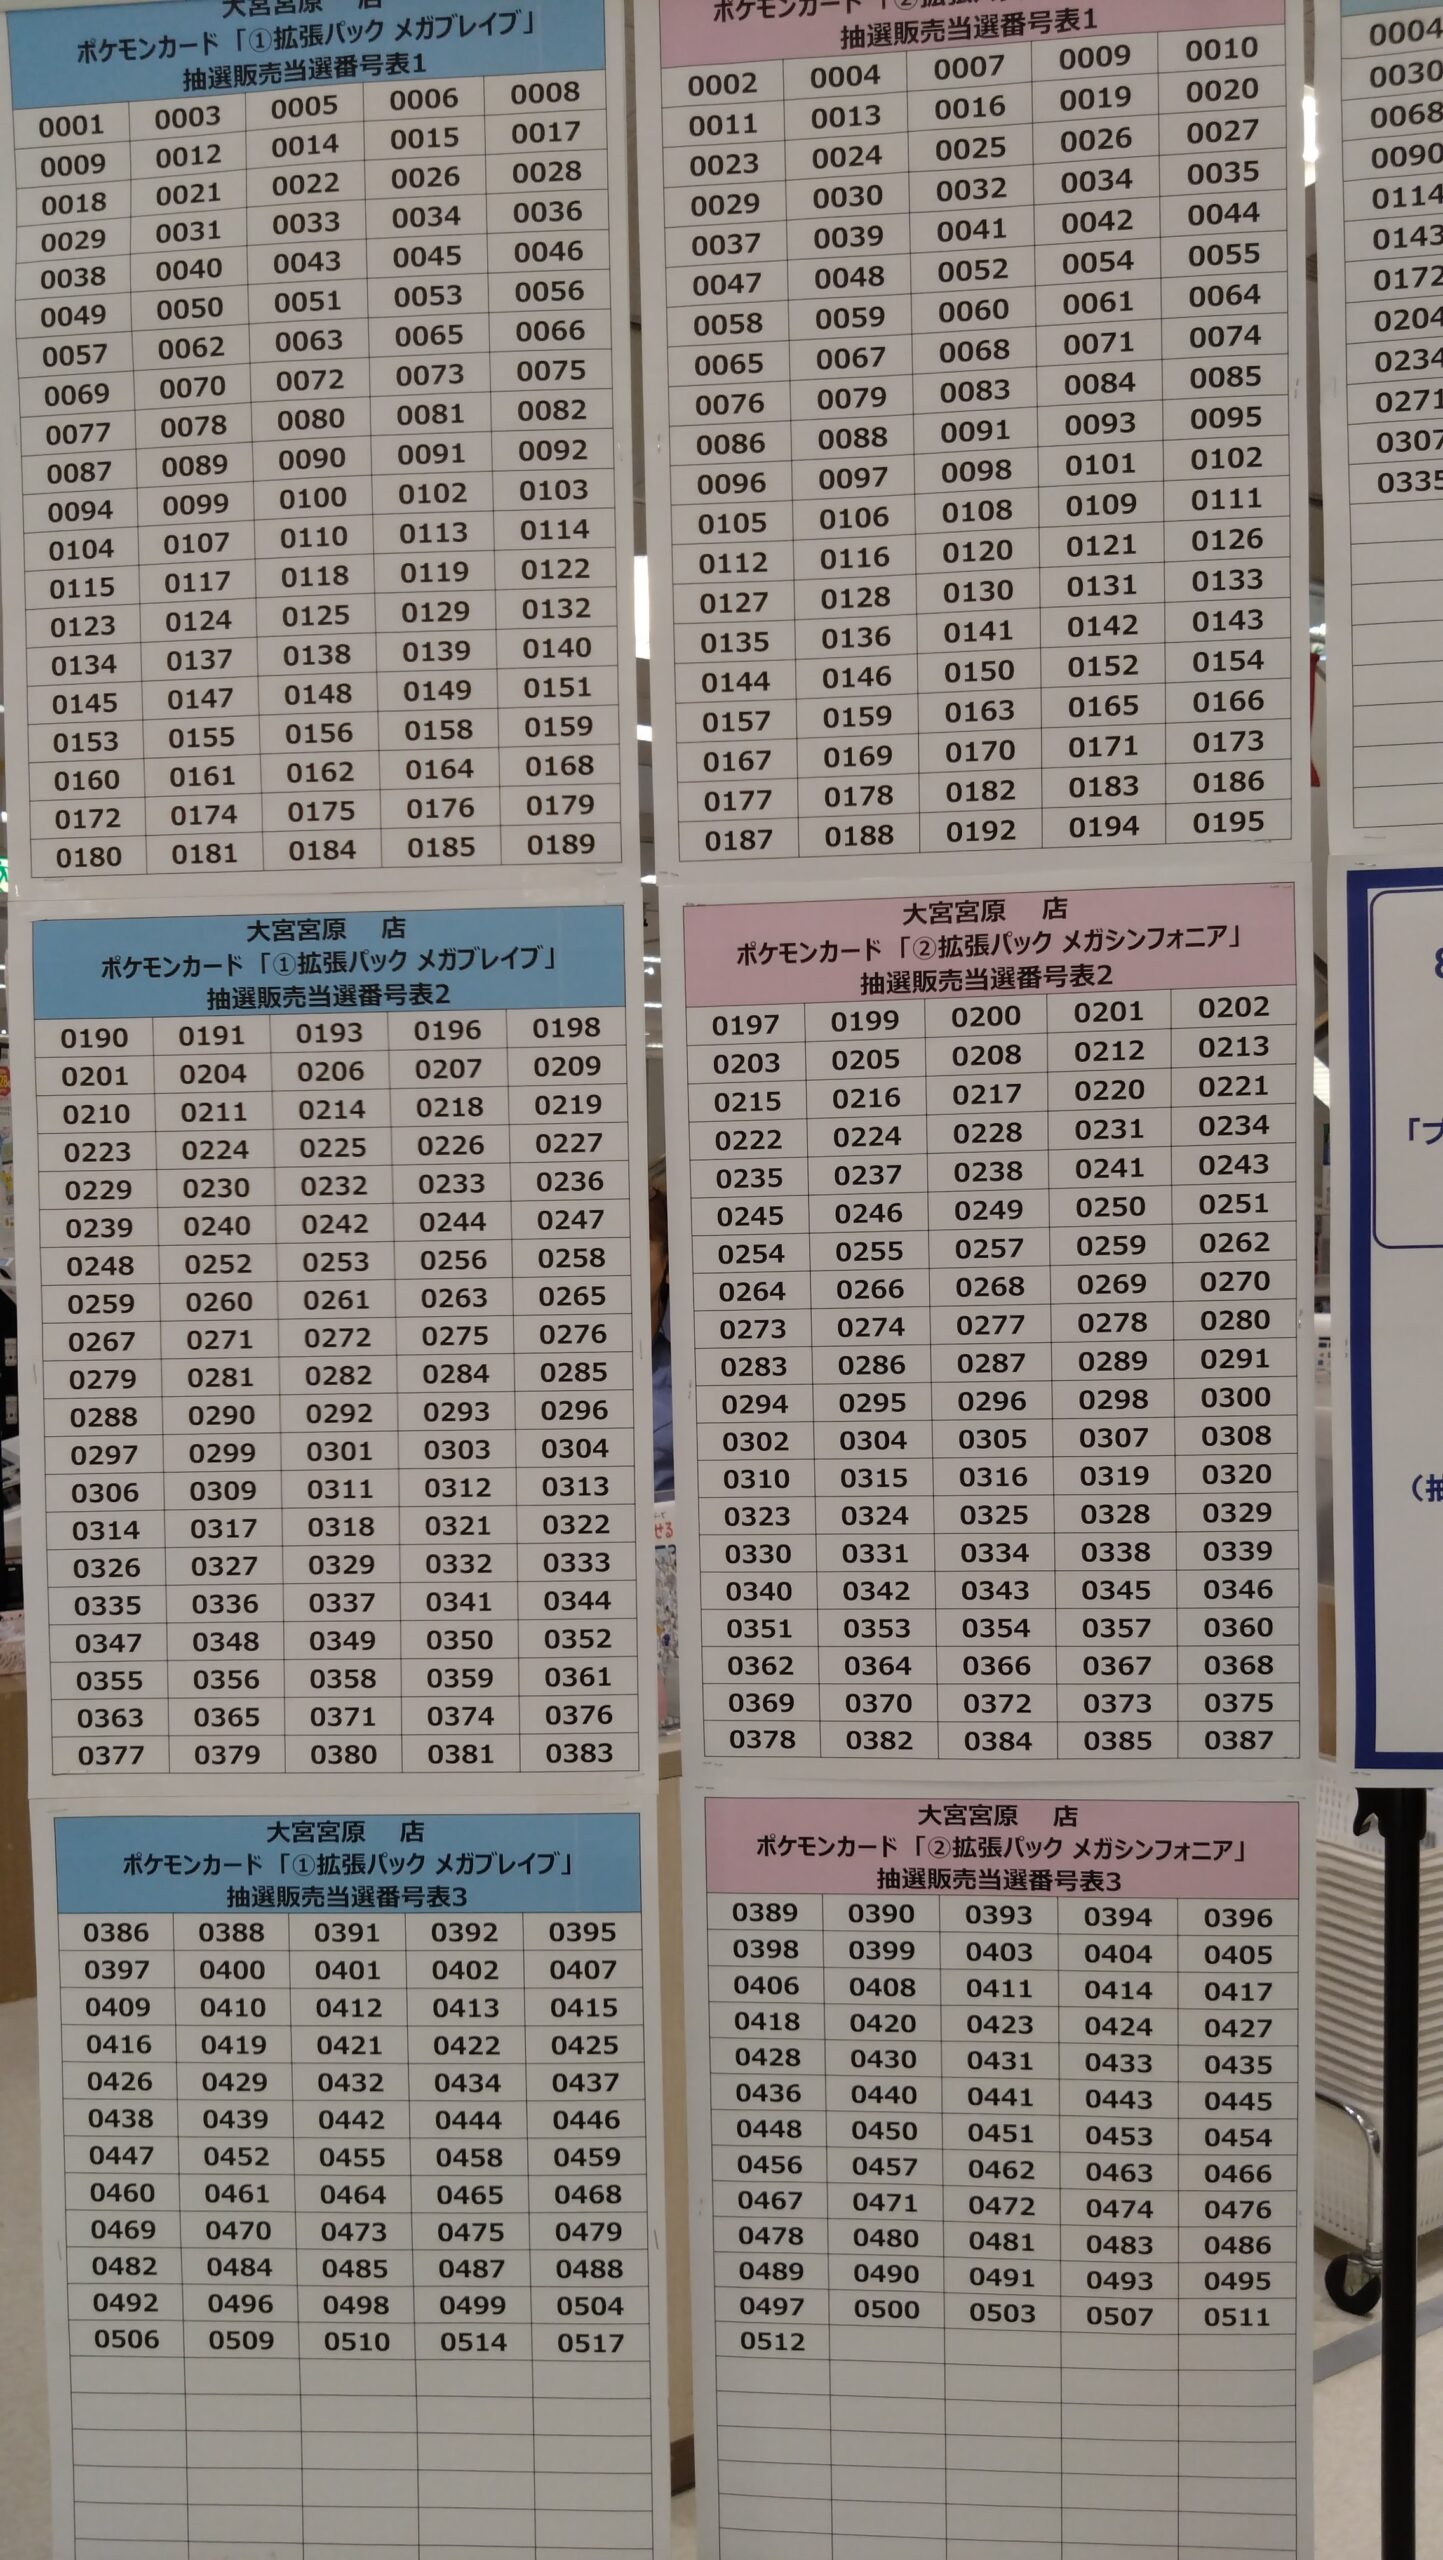 大宮宮原 店
ポケモンカード「①拡張パック メガブレイブ」
抽選販売当選番号表1
0001 0003 0005 0006 0008
0009 0012 0014 0015 0017
0018 0021 0022 0026 0028
0029 0031 0033 0034 0036
0038 0040 0043 0045 0046
0049 0050 0051 0053 0056
0057 0062 0063 0065 0066
0069 0070 0072 0073 0075
0077 0078 0080 0081 0082
0087 0089 0090 0091 0092
0094 0099 0100 0102 0103
0104 0107 0110 0113 0114
0115 0117 0118 0119 0122
0123 0124 0125 0129 0132
0134 0137 0138 0139 0140
0145 0147 0148 0149 0151
0153 0155 0156 0158 0159
0160 0161 0162 0164 0168
0172 0174 0175 0176 0179
0180 0181 0184 0185 0189
大宮宮原 店
ポケモンカード「①拡張パック メガブレイブ」
抽選販売当選番号表2
0190 0191 0193 0196 0198
0201 0204 0206 0207 0209
0210 0211 0214 0218 0219
0223 0224 0225 0226 0227
0229 0230 0232 0233 0236
0239 0240 0242 0244 0247
0248 0252 0253 0256 0258
0259 0260 0261 0263 0265
0267 0271 0272 0275 0276
0279 0281 0282 0284 0285
0288 0290 0292 0293 0296
0297 0299 0301 0303 0304
0306 0309 0311 0312 0313
0314 0317 0318 0321 0322
0326 0327 0329 0332 0333
0335 0336 0337 0341 0344
0347 0348 0349 0350 0352
0355 0356 0358 0359 0361
0363 0365 0371 0374 0376
0377 0379 0380 0381 0383
大宮宮原 店
ポケモンカード「①拡張パック メガブレイブ」
抽選販売当選番号表3
0386 0388 0391 0392 0395
0397 0400 0401 0402 0407
0409 0410 0412 0413 0415
0416 0419 0421 0422 0425
0426 0429 0432 0434 0437
0438 0439 0442 0444 0446
0447 0452 0455 0458 0459
0460 0461 0464 0465 0468
0469 0470 0473 0475 0479
0482 0484 0485 0487 0488
0492 0496 0498 0499 0504
0506 0509 0510 0514 0517
ポケモンカード「②拡張パッ
抽選販売当選番号表1
0002 0004 0007 0009 0010
0011 0013 0016 0019 0020
0023 0024 0025 0026 0027
0029 0030 0032 0034 0035
0037 0039 0041 0042 0044
0047 0048 0052 0054 0055
0058 0059 0060 0061 0064
0065 0067 0068 0071 0074
0076 0079 0083 0084 0085
0086 0088 0091 0093 0095
0096 0097 0098 0101 0102
0105 0106 0108 0109 0111
0112 0116 0120 0121 0126
0127 0128 0130 0131 0133
0135 0136 0141 0142 0143
0144 0146 0150 0152 0154
0157 0159 0163 0165 0166
0167 0169 0170 0171 0173
0177 0178 0182 0183 0186
0187 0188 0192 0194 0195
大宮宮原 店
ポケモンカード「②拡張パック メガシンフォニア」
抽選販売当選番号表2
0197 0199 0200 0201 0202
0203 0205 0208 0212 0213
0215 0216 0217 0220 0221
0222 0224 0228 0231 0234
0235 0237 0238 0241 0243
0245 0246 0249 0250 0251
0254 0255 0257 0259 0262
0264 0266 0268 0269 0270
0273 0274 0277 0278 0280
0283 0286 0287 0289 0291
0294 0295 0296 0298 0300
0302 0304 0305 0307 0308
0310 0315 0316 0319 0320
0323 0324 0325 0328 0329
0330 0331 0334 0338 0339
0340 0342 0343 0345 0346
0351 0353 0354 0357 0360
0362 0364 0366 0367 0368
0369 0370 0372 0373 0375
0378 0382 0384 0385 0387
大宮宮原 店
ポケモンカード「②拡張パック メガシンフォニア」
抽選販売当選番号表3
0389 0390 0393 0394 0396
0398 0399 0403 0404 0405
0406 0408 0411 0414 0417
0418 0420 0423 0424 0427
0428 0430 0431 0433 0435
0436 0440 0441 0443 0445
0448 0450 0451 0453 0454
0456 0457 0462 0463 0466
0467 0471 0472 0474 0476
0478 0480 0481 0483 0486
0489 0490 0491 0493 0495
0497 0500 0503 0507 0511
0512
0004
0030
0068
0090
0114
0143
0172
0204
0234
0271
0307
0335
「ブ
（抽